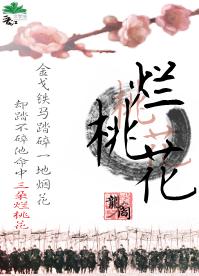 烂桃花
金戈铁马踏碎一地烟花
却踏不碎他命中三朵烂桃花